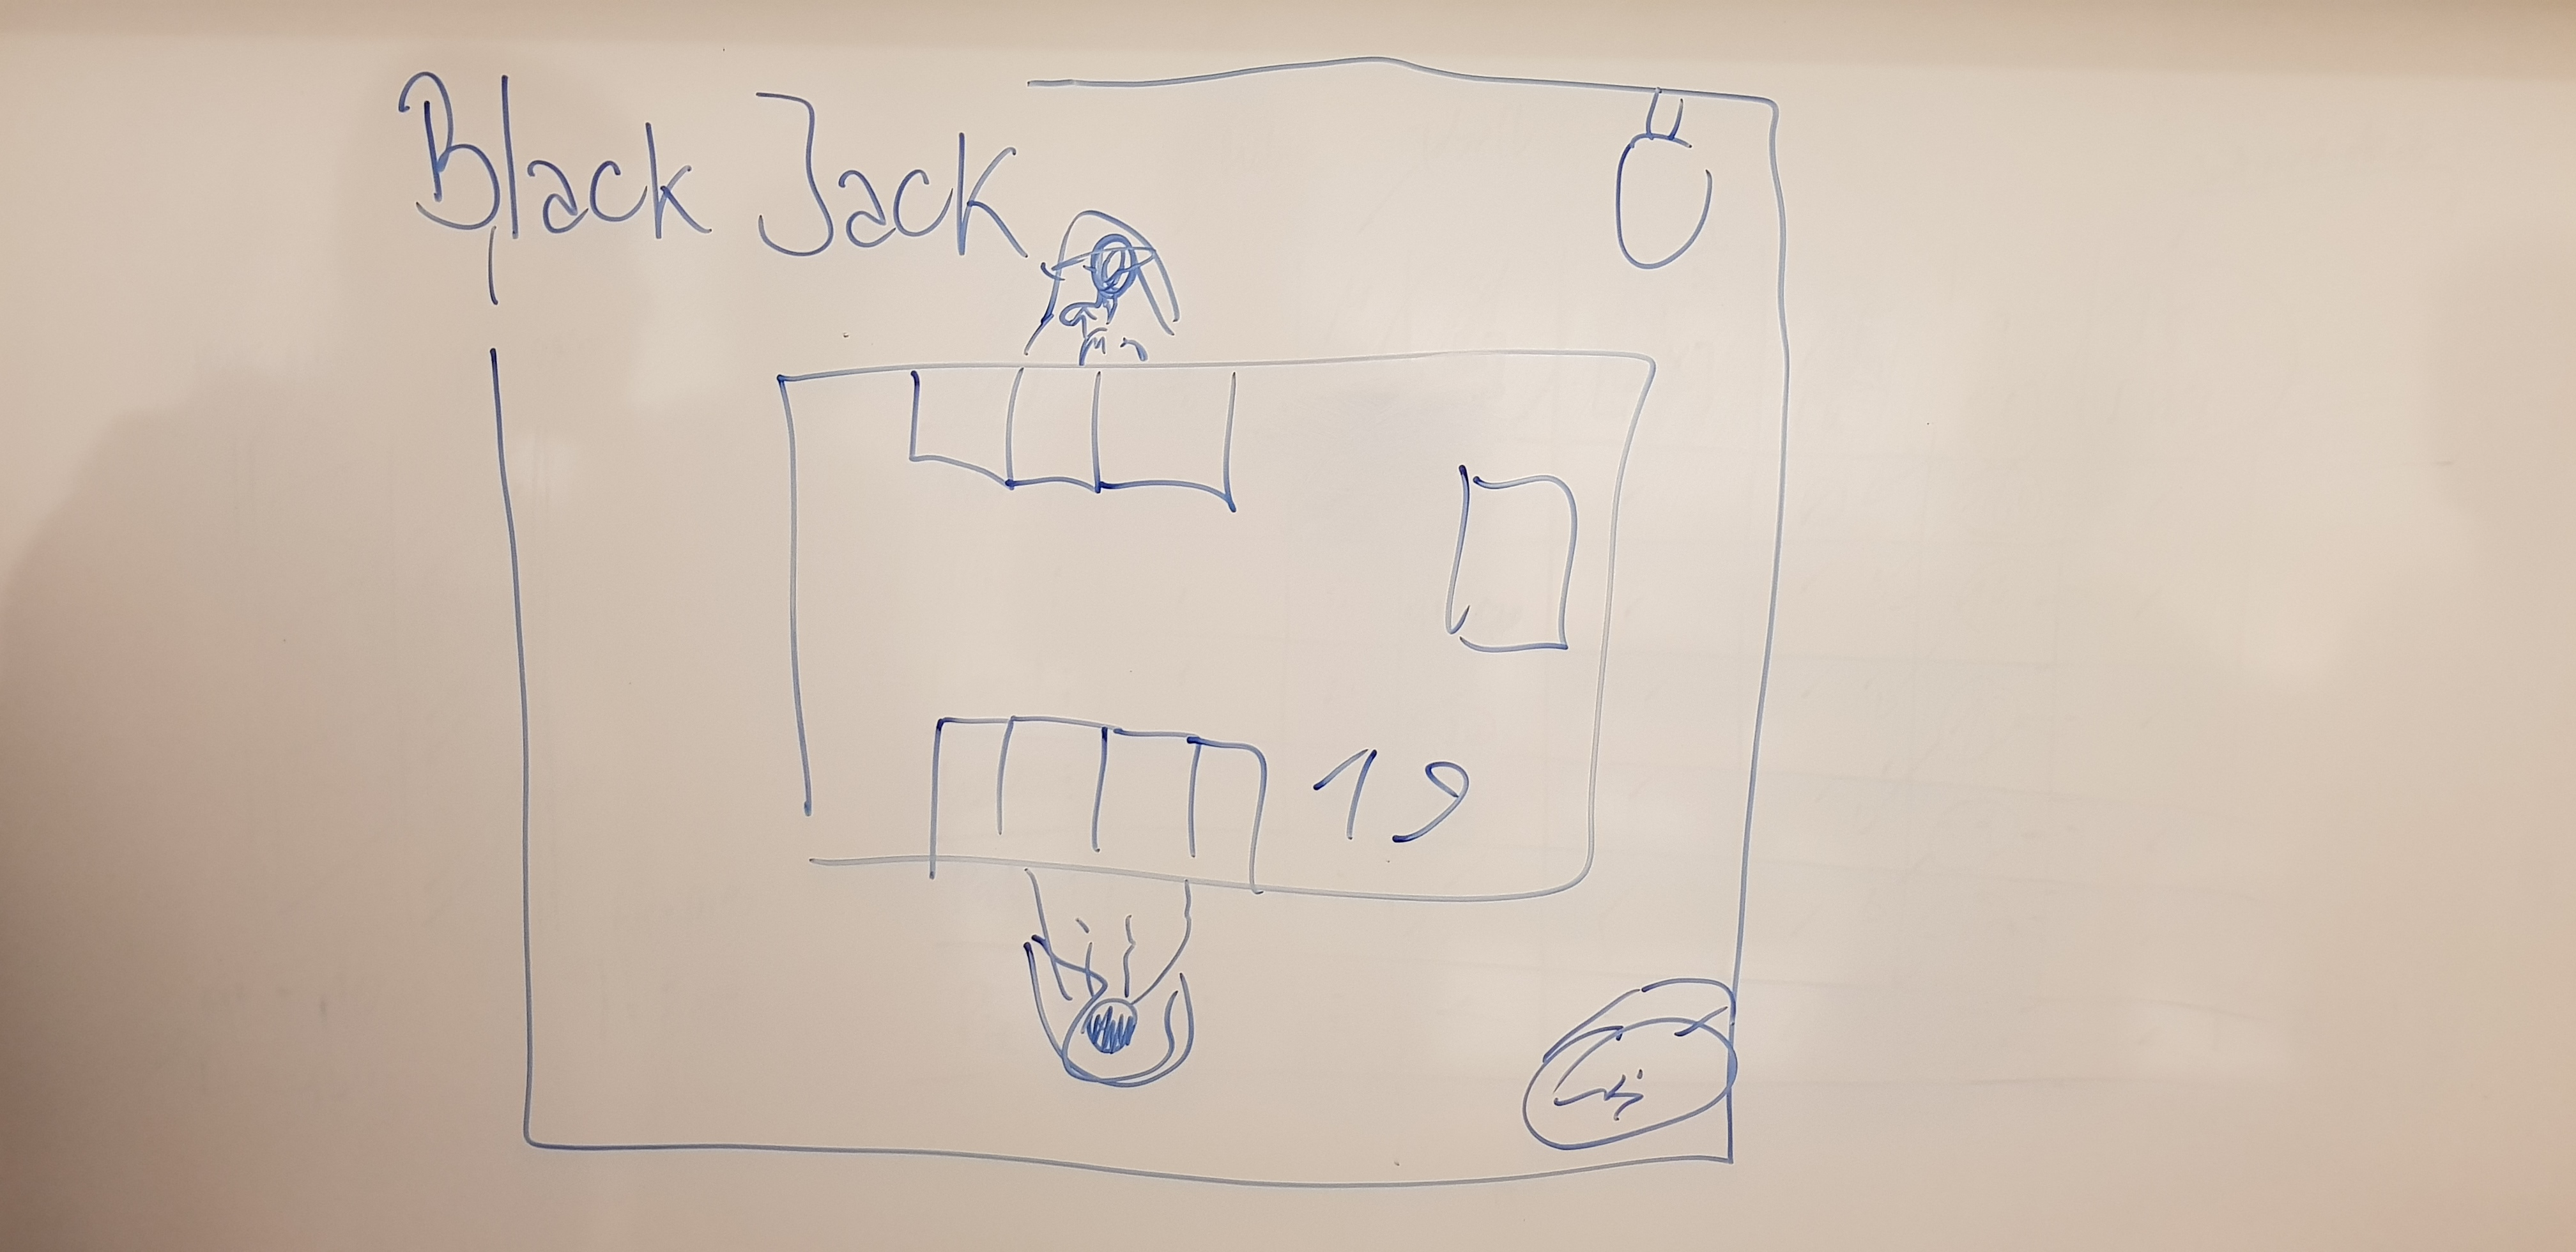 Black Jack
19